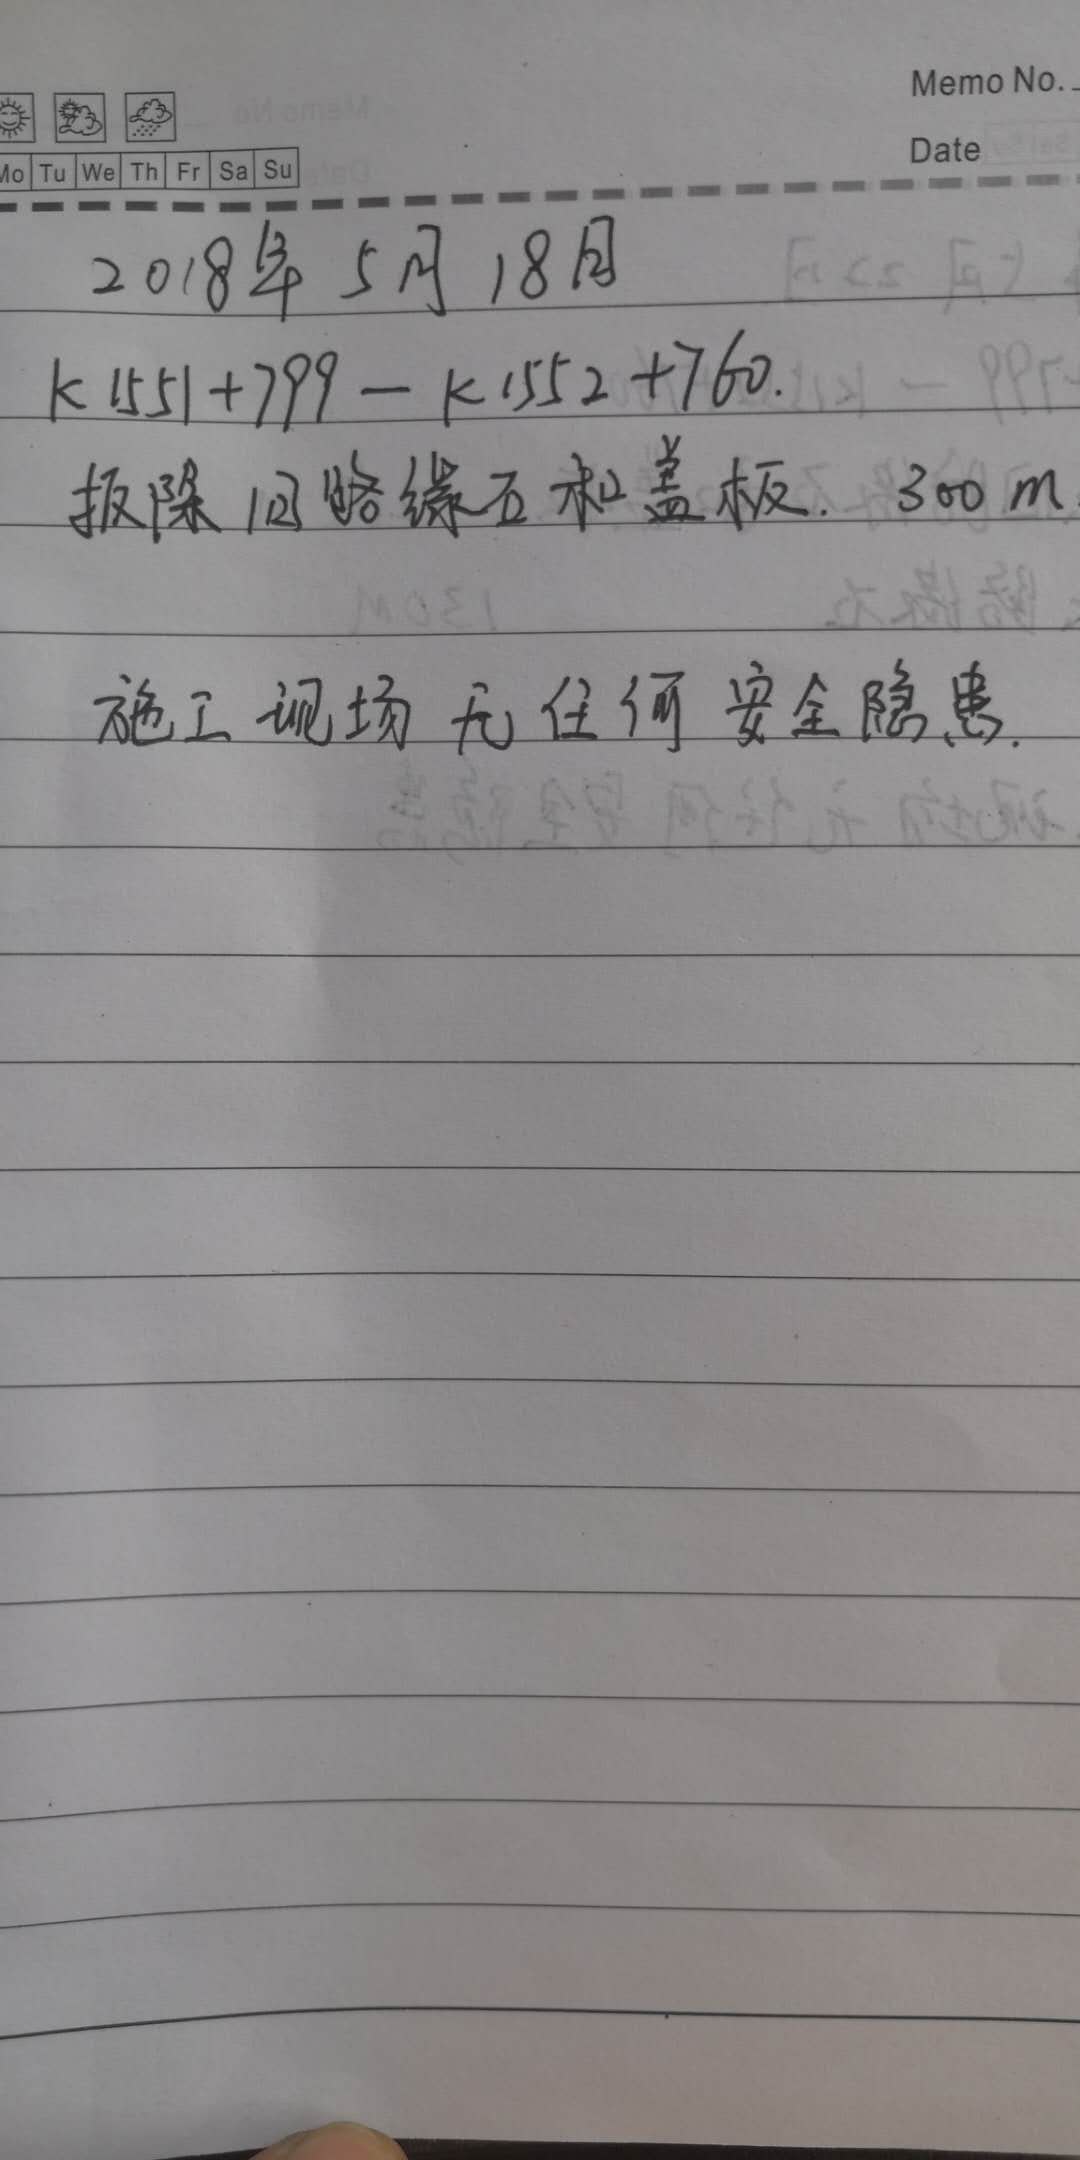 Memo No.
Date
Mo Tu We Th Fr Sa Su
2018年 5月 18日
K1551+799 — K1552+760.
扳除旧路缘石和盖板. 300m
施工现场无任何安全隐患.